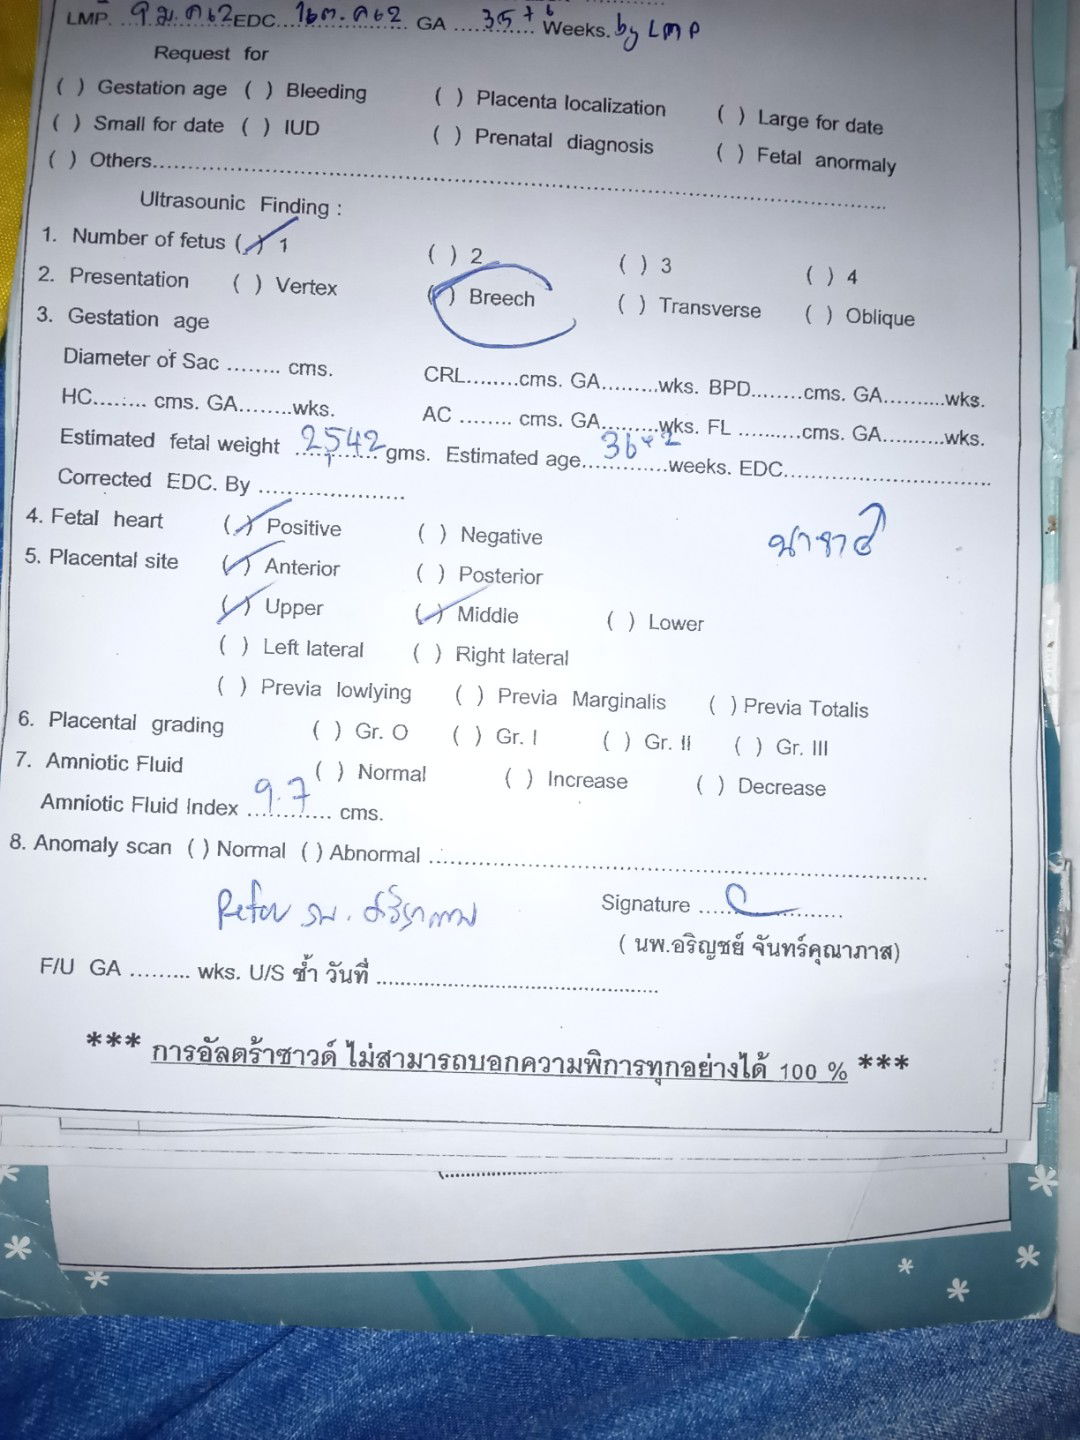 LMP. 9 ม.ค 62 EDC. 16 ต.ค 62 GA 35+6 Weeks. by LMP
Request for
( ) Gestation age ( ) Bleeding ( ) Placenta localization ( ) Large for date
( ) Small for date ( ) IUD ( ) Prenatal diagnosis ( ) Fetal anormaly
( ) Others
Ultrasounic Finding :
1. Number of fetus (✓) 1 ( ) 2 ( ) 3 ( ) 4
2. Presentation ( ) Vertex (✓) Breech ( ) Transverse ( ) Oblique
3. Gestation age
Diameter of Sac ........ cms. CRL........cms. GA.........wks. BPD........cms. GA..........wks.
HC........ cms. GA........wks. AC ........ cms. GA.........wks. FL ..........cms. GA..........wks.
Estimated fetal weight 2542 gms. Estimated age 36+2 weeks. EDC
Corrected EDC. By
4. Fetal heart (✓) Positive ( ) Negative
5. Placental site (✓) Anterior ( ) Posterior
(✓) Upper (✓) Middle ( ) Lower
( ) Left lateral ( ) Right lateral
( ) Previa lowlying ( ) Previa Marginalis ( ) Previa Totalis
6. Placental grading ( ) Gr. O ( ) Gr. I ( ) Gr. II ( ) Gr. III
7. Amniotic Fluid ( ) Normal ( ) Increase ( ) Decrease
Amniotic Fluid Index 9.7 cms.
8. Anomaly scan ( ) Normal ( ) Abnormal
Refer รพ.
Signature
( นพ.อริญชย์ จันทร์คุณาภาส)
F/U GA ......... wks. U/S ซ้ำ วันที่
*** การอัลตร้าซาวด์ ไม่สามารถบอกความพิการทุกอย่างได้ 100 % ***